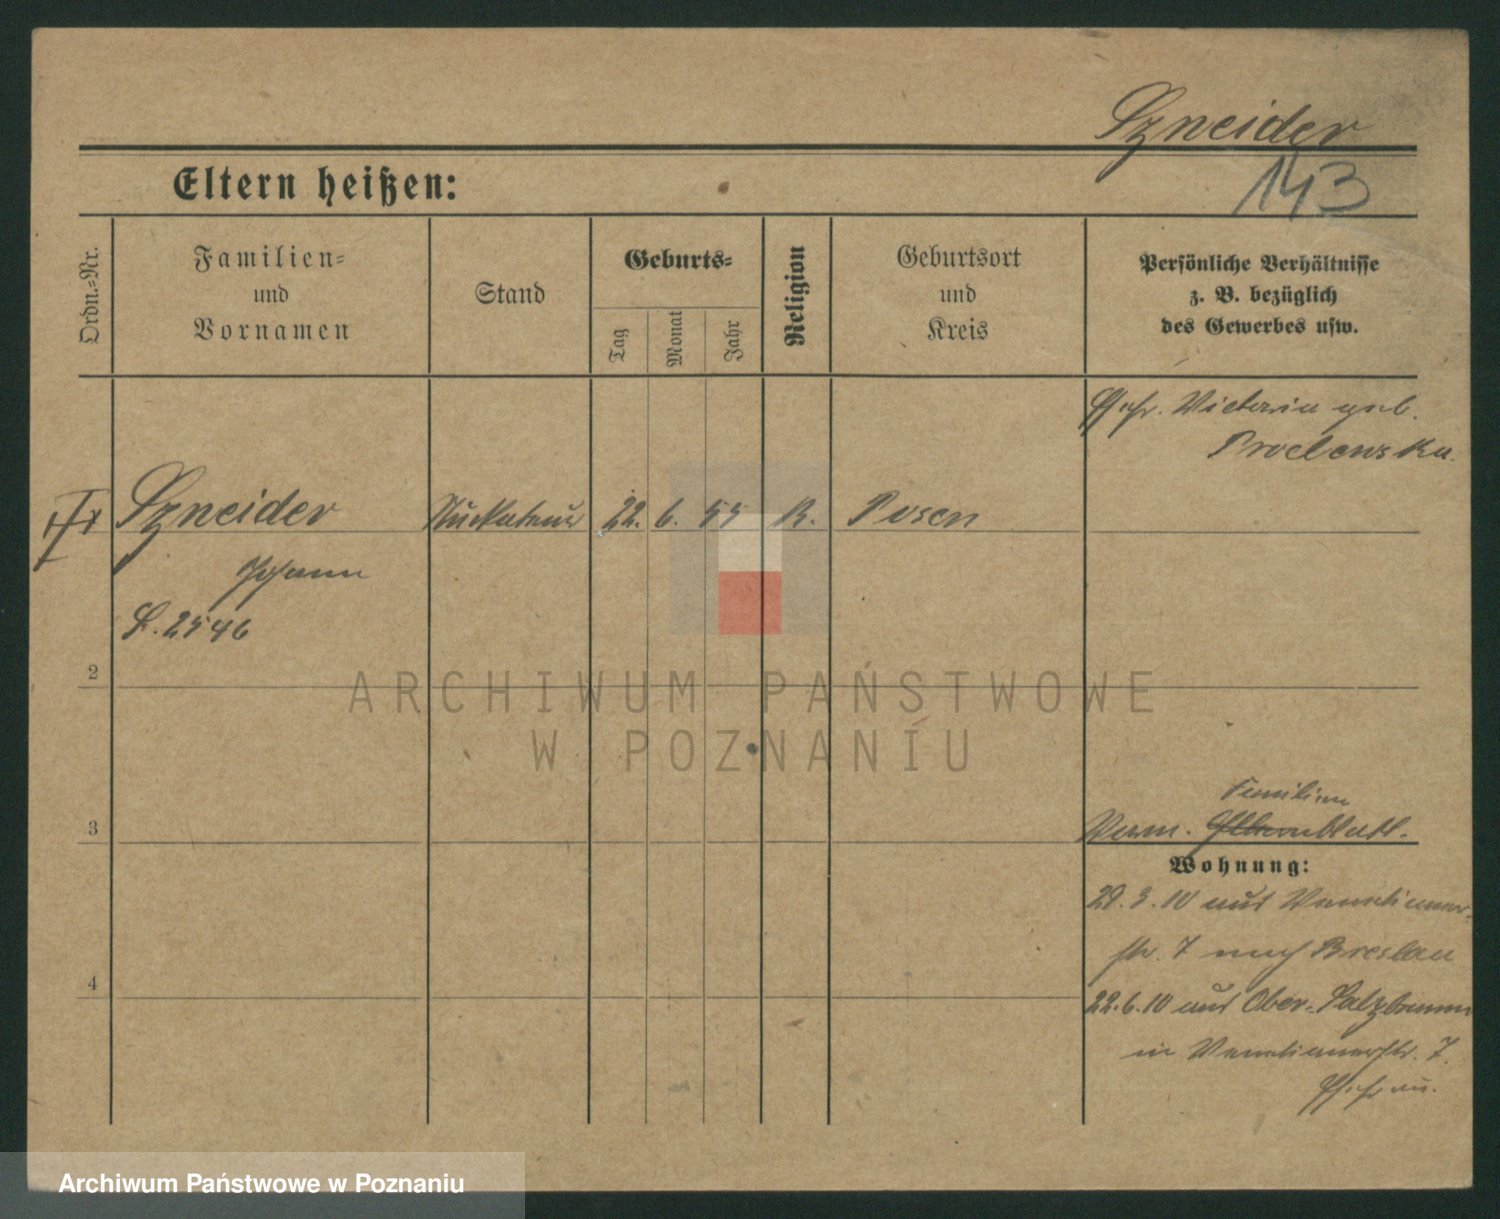 Szneider
143
Eltern heißen:
Ordn.-Nr.
Familien-
und
Vornamen
Stand
Geburts-
Tag
Monat
Jahr
Religion
Geburtsort
und
Kreis
Persönliche Verhältnisse
z. B. bezüglich
des Gewerbes usw.
Ehefr. Victoria geb.
Szneider
22. 6. 55
Posen
Johann
2
ARCHIWUM PAŃSTWOWE
W POZNANIU
Familien
3
Verm.
Wohnung:
3.10 aus Venetianer-
str. 7 nach Breslau
4
22.6.10 aus Ober-Salzbrunn
in Venetianerstr. 7.
Ehefrau.
Archiwum Państwowe w Poznaniu